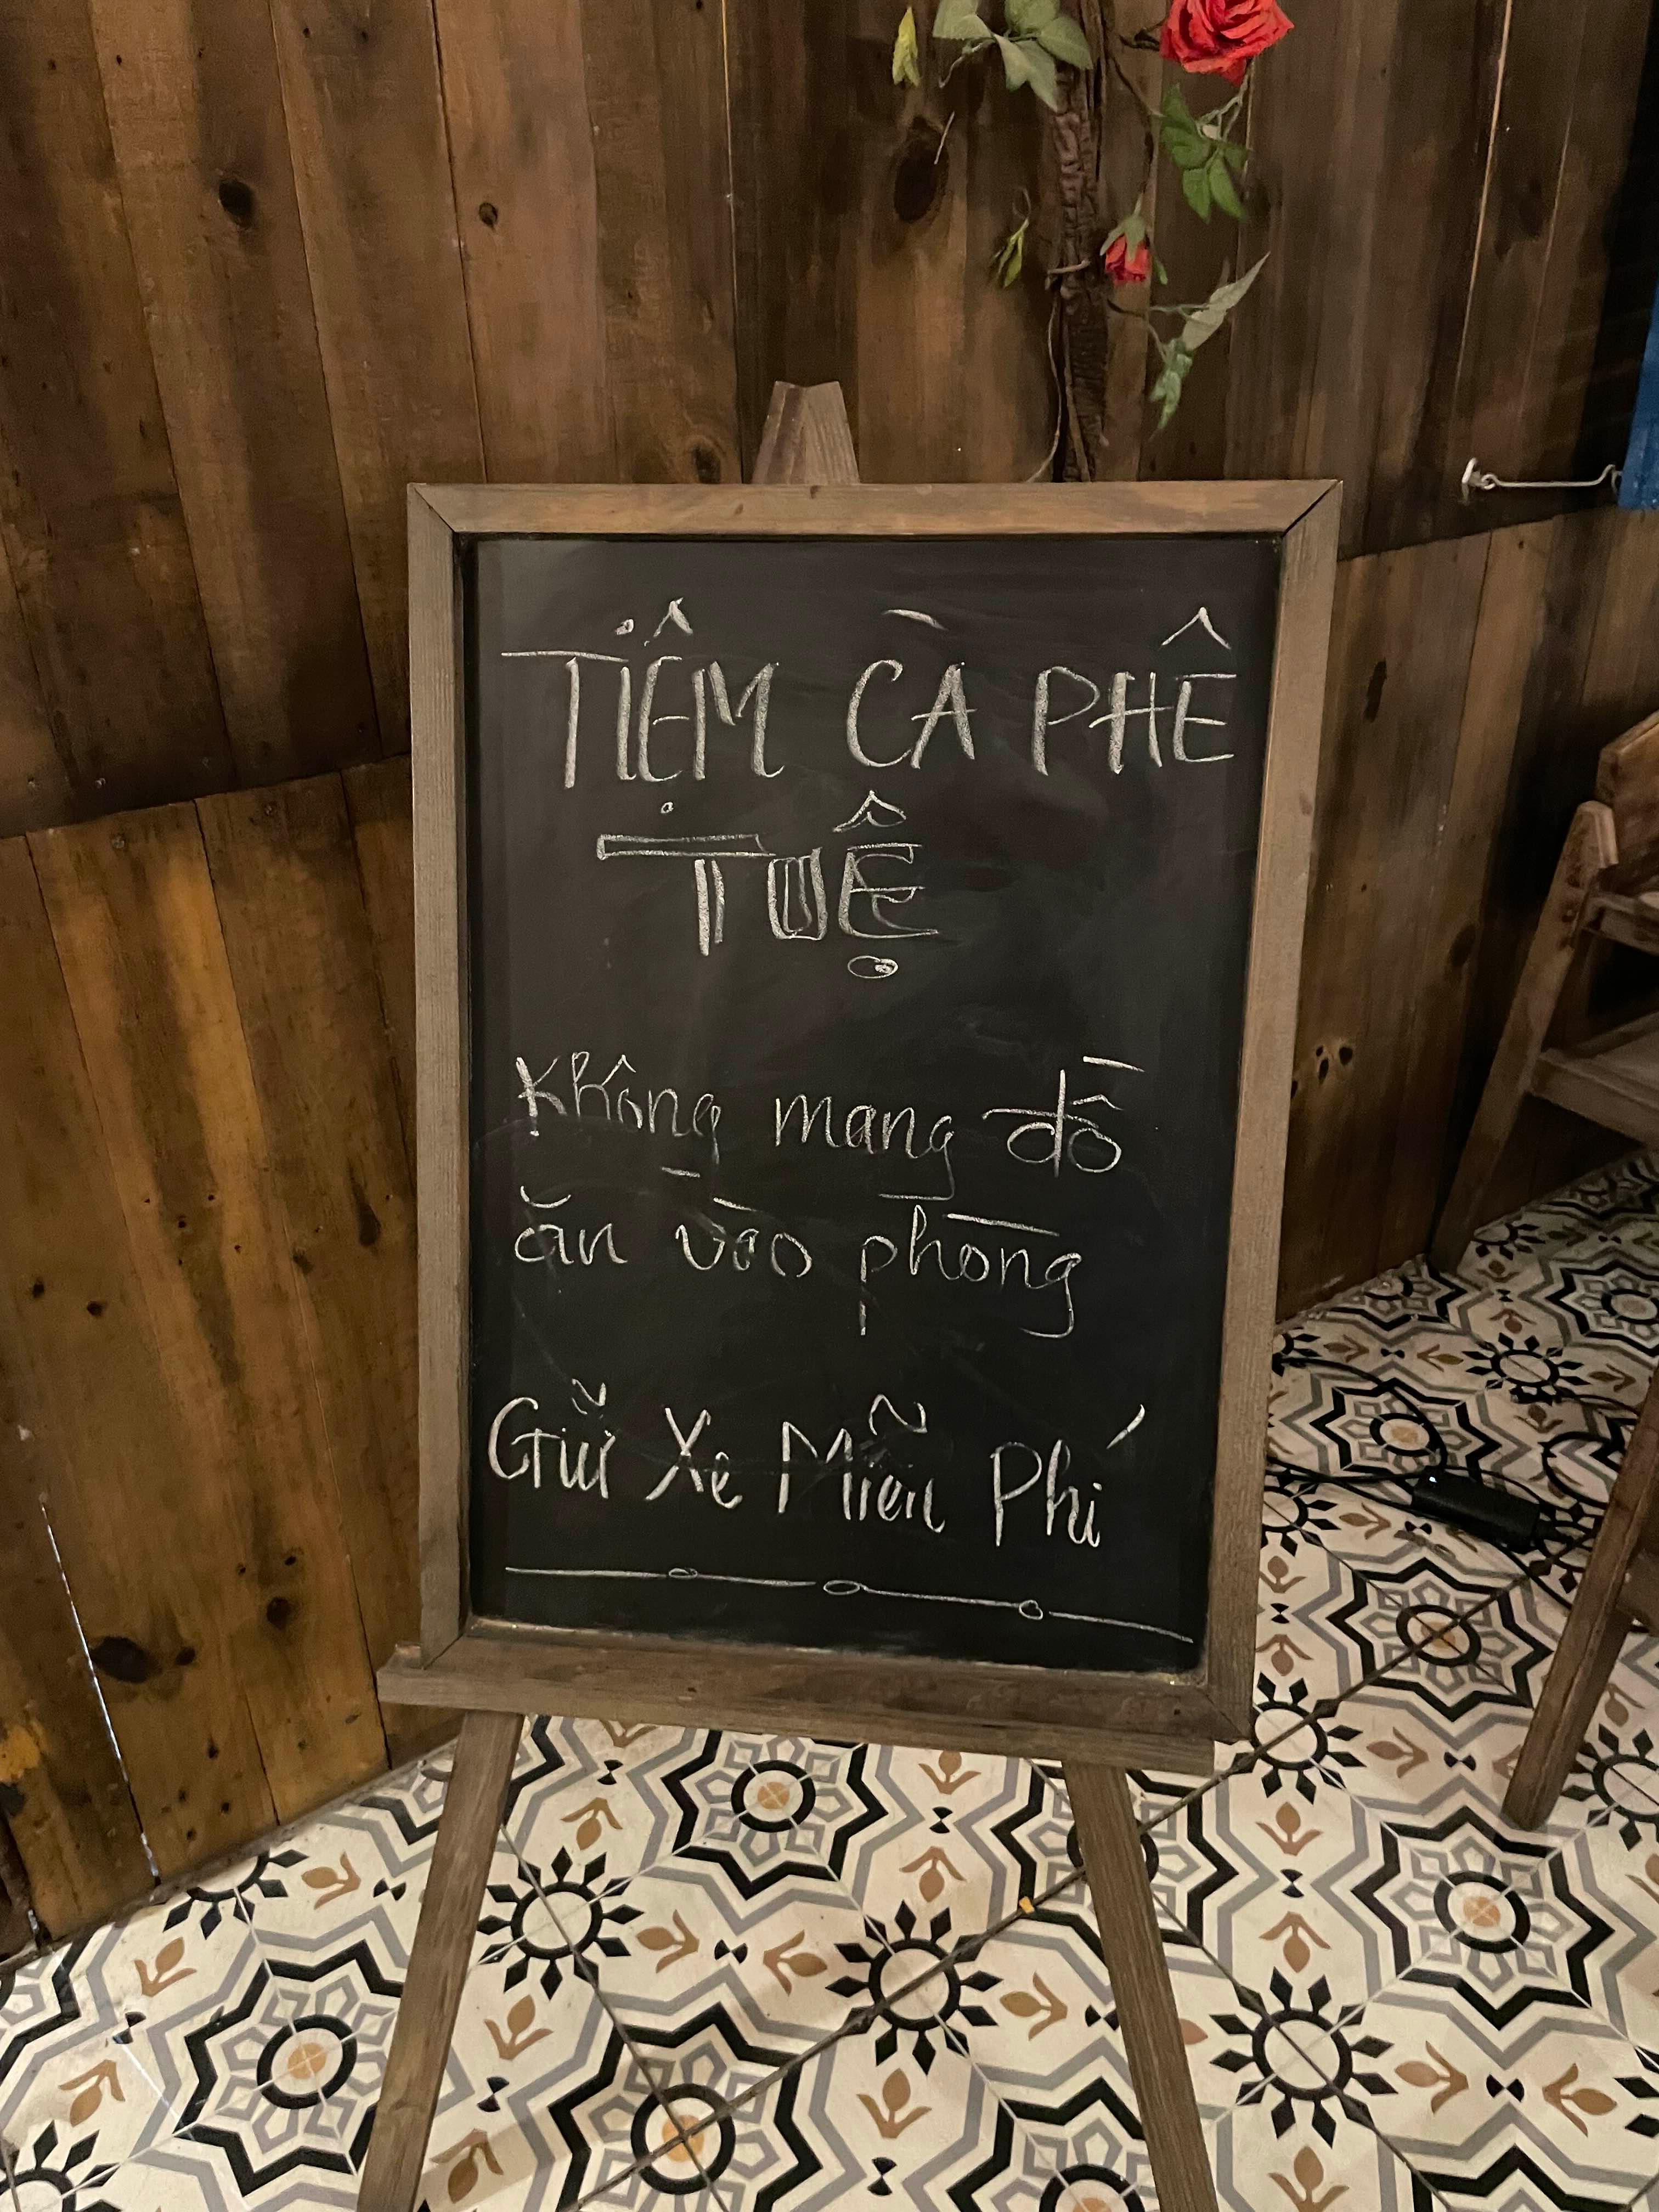 TIỆM CÀ PHÊ
TUỆ
Không mang đồ
ăn vào phòng
Giữ Xe Miễn Phí